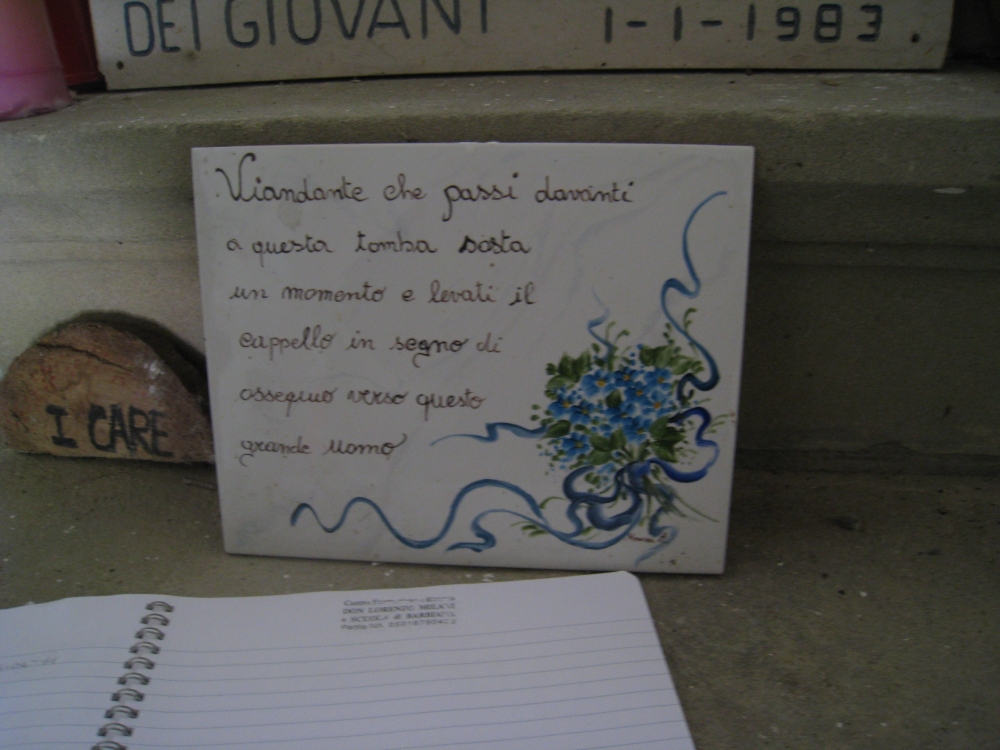 DEI GIOVANI 1-1-1983.
Viandante che passi davanti
a questa tomba sosta
un momento e levati il
cappello in segno di
ossequio verso questo
grande Uomo
I CARE
Centro
DON LORENZO MILANI
e SCUOLA di BARBIANA
Partita IVA